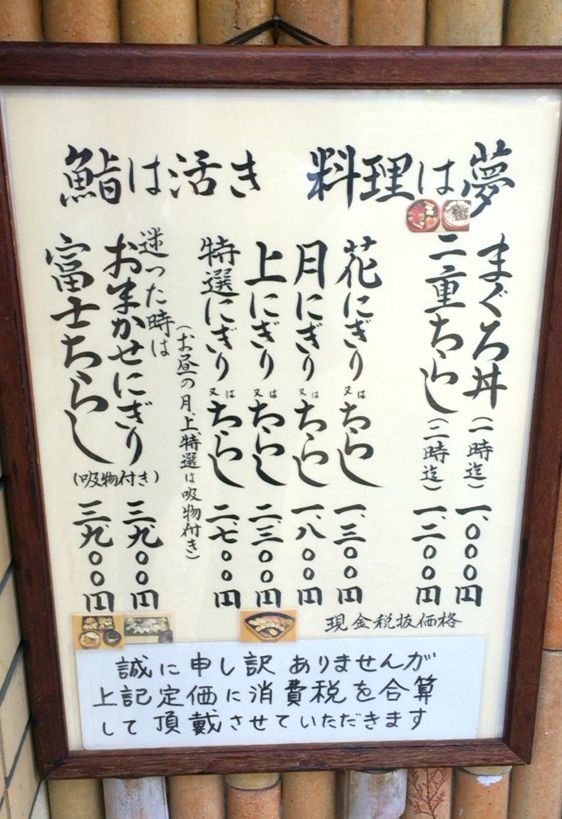 鮨は活き 料理は夢
まぐろ丼(一時迄)一、〇〇〇円
二重ちらし(二時迄)一、二〇〇円
花にぎり又はちらし 一、三〇〇円
月にぎり又はちらし 一、八〇〇円
上にぎり又はちらし 二、三〇〇円
特選にぎり又はちらし 二、七〇〇円
(お昼の月、上、特選は吸物付き)
迷った時は
おまかせにぎり 三、九〇〇円
富士ちらし(吸物付き)三、九〇〇円
現金税抜価格
誠に申し訳ありませんが
上記定価に消費税を合算
して頂戴させていただきます